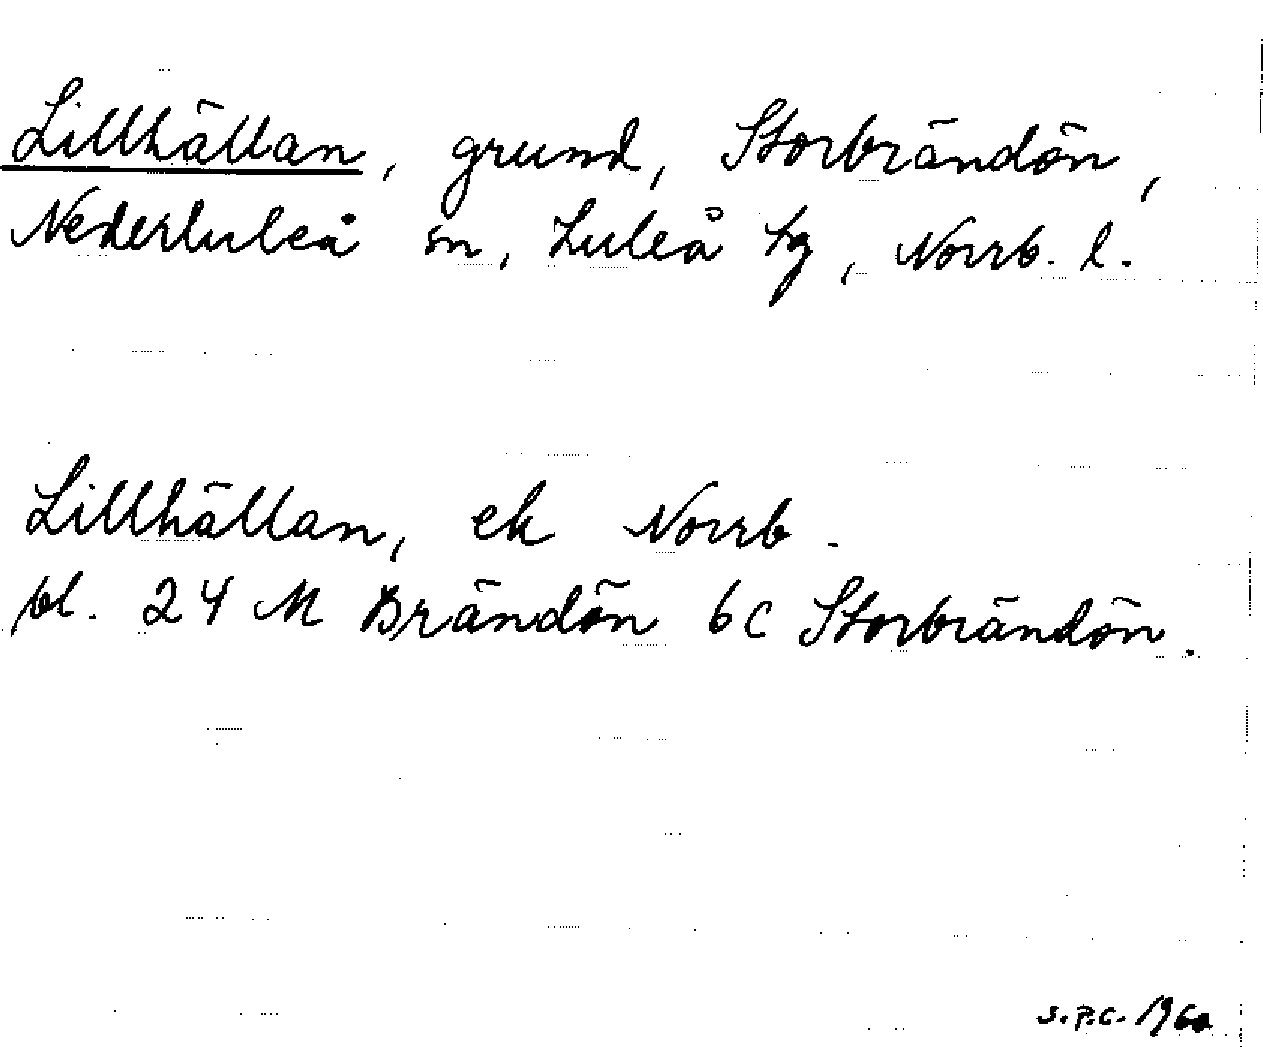 Lillhällan, grund, Storbrändön,
Nederluleå sn, Luleå tg, Norrb. l.
Lillhällan, ek Norrb.
bl. 24 M Brändön 6c Storbrändön.
S.P.C. 1960